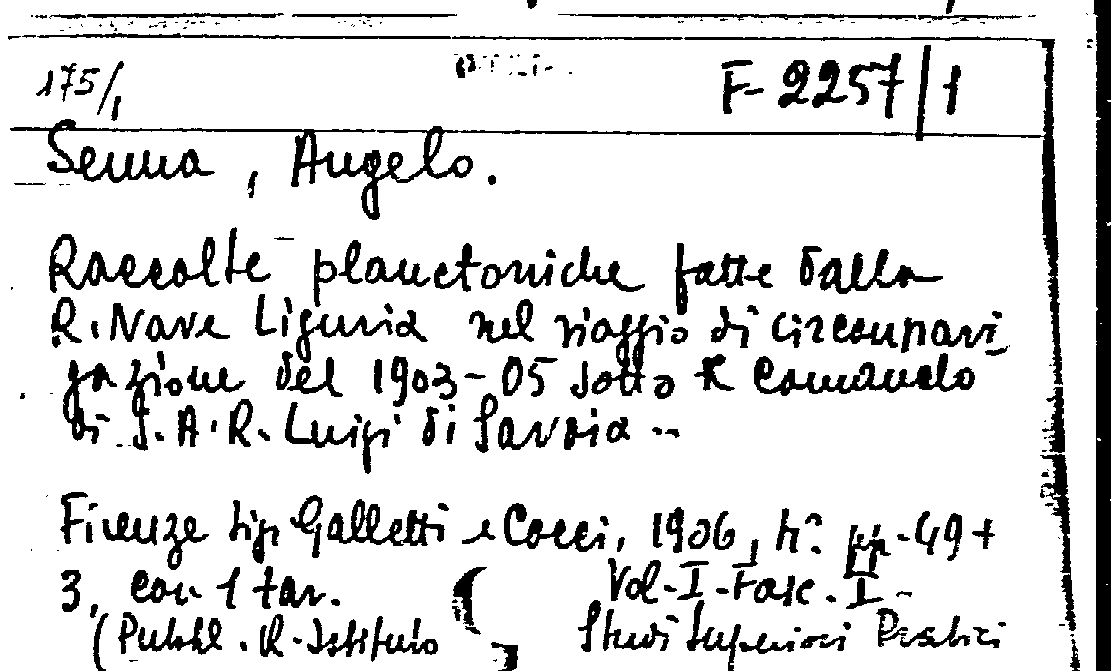 175/1 F-2257/1
Senna, Angelo.
Raccolte planctoniche fatte dalla
R. Nave Liguria nel viaggio di circonnavi
gazione del 1903-05 sotto il comando
di S.A.R. Luigi di Savoia..
Firenze tip. Galletti e Cocci, 1906, 4º. pp. 49+
3, con 1 tav. Vol-I-Fasc.I-
(Pubbl. R. Istituto Studi Superiori Pratici